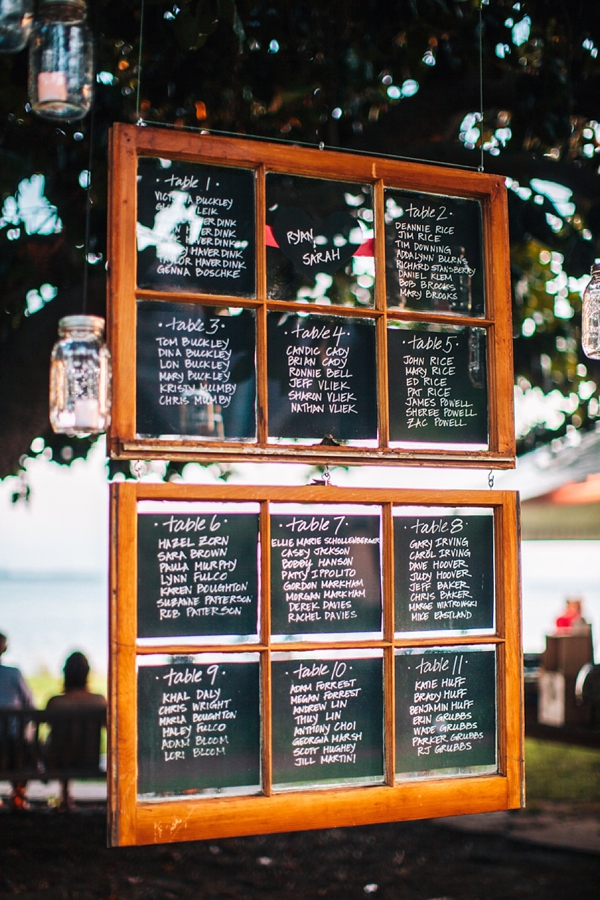 table 1
Victoria Buckley
Leik
Haverdink
Haverdink
Haverdink
Taylor Haverdink
Genna Boschke
Ryan
Sarah
table 2
Deannie Rice
Jim Rice
Tim Downing
Addalynn Burns
Richard Stansberry
Daniel Klem
Bob Brooks
Mary Brooks
table 3
Tom Buckley
Dina Buckley
Lon Buckley
Mary Buckley
Kristy Mumby
Chris Mumby
table 4
Candic Cady
Brian Cady
Ronnie Bell
Jeff Vliek
Sharon Vliek
Nathan Vliek
table 5
John Rice
Mary Rice
Ed Rice
Pat Rice
James Powell
Sheree Powell
Zac Powell
table 6
Hazel Zorn
Sara Brown
Paula Murphy
Lynn Fulco
Karen Boughton
Suzanne Patterson
Rob Patterson
table 7
Ellie Marie Schollenberger
Casey Jackson
Bobby Hanson
Patty Ippolito
Gordon Markham
Morgan Markham
Derek Davies
Rachel Davies
table 8
Gary Irving
Carol Irving
Dave Hoover
Judy Hoover
Jeff Baker
Chris Baker
Marge Wiatrowski
Mike Eastland
table 9
Khal Daly
Chris Wright
Marla Boughton
Haley Fulco
Adam Bloom
Lori Bloom
table 10
Adam Forrest
Megan Forrest
Andrew Lin
Thuy Lin
Anthony Choi
Georgia Marsh
Scott Hughey
Jill Martini
table 11
Katie Huff
Brady Huff
Benjamin Huff
Erin Grubbs
Wade Grubbs
Parker Grubbs
RJ Grubbs